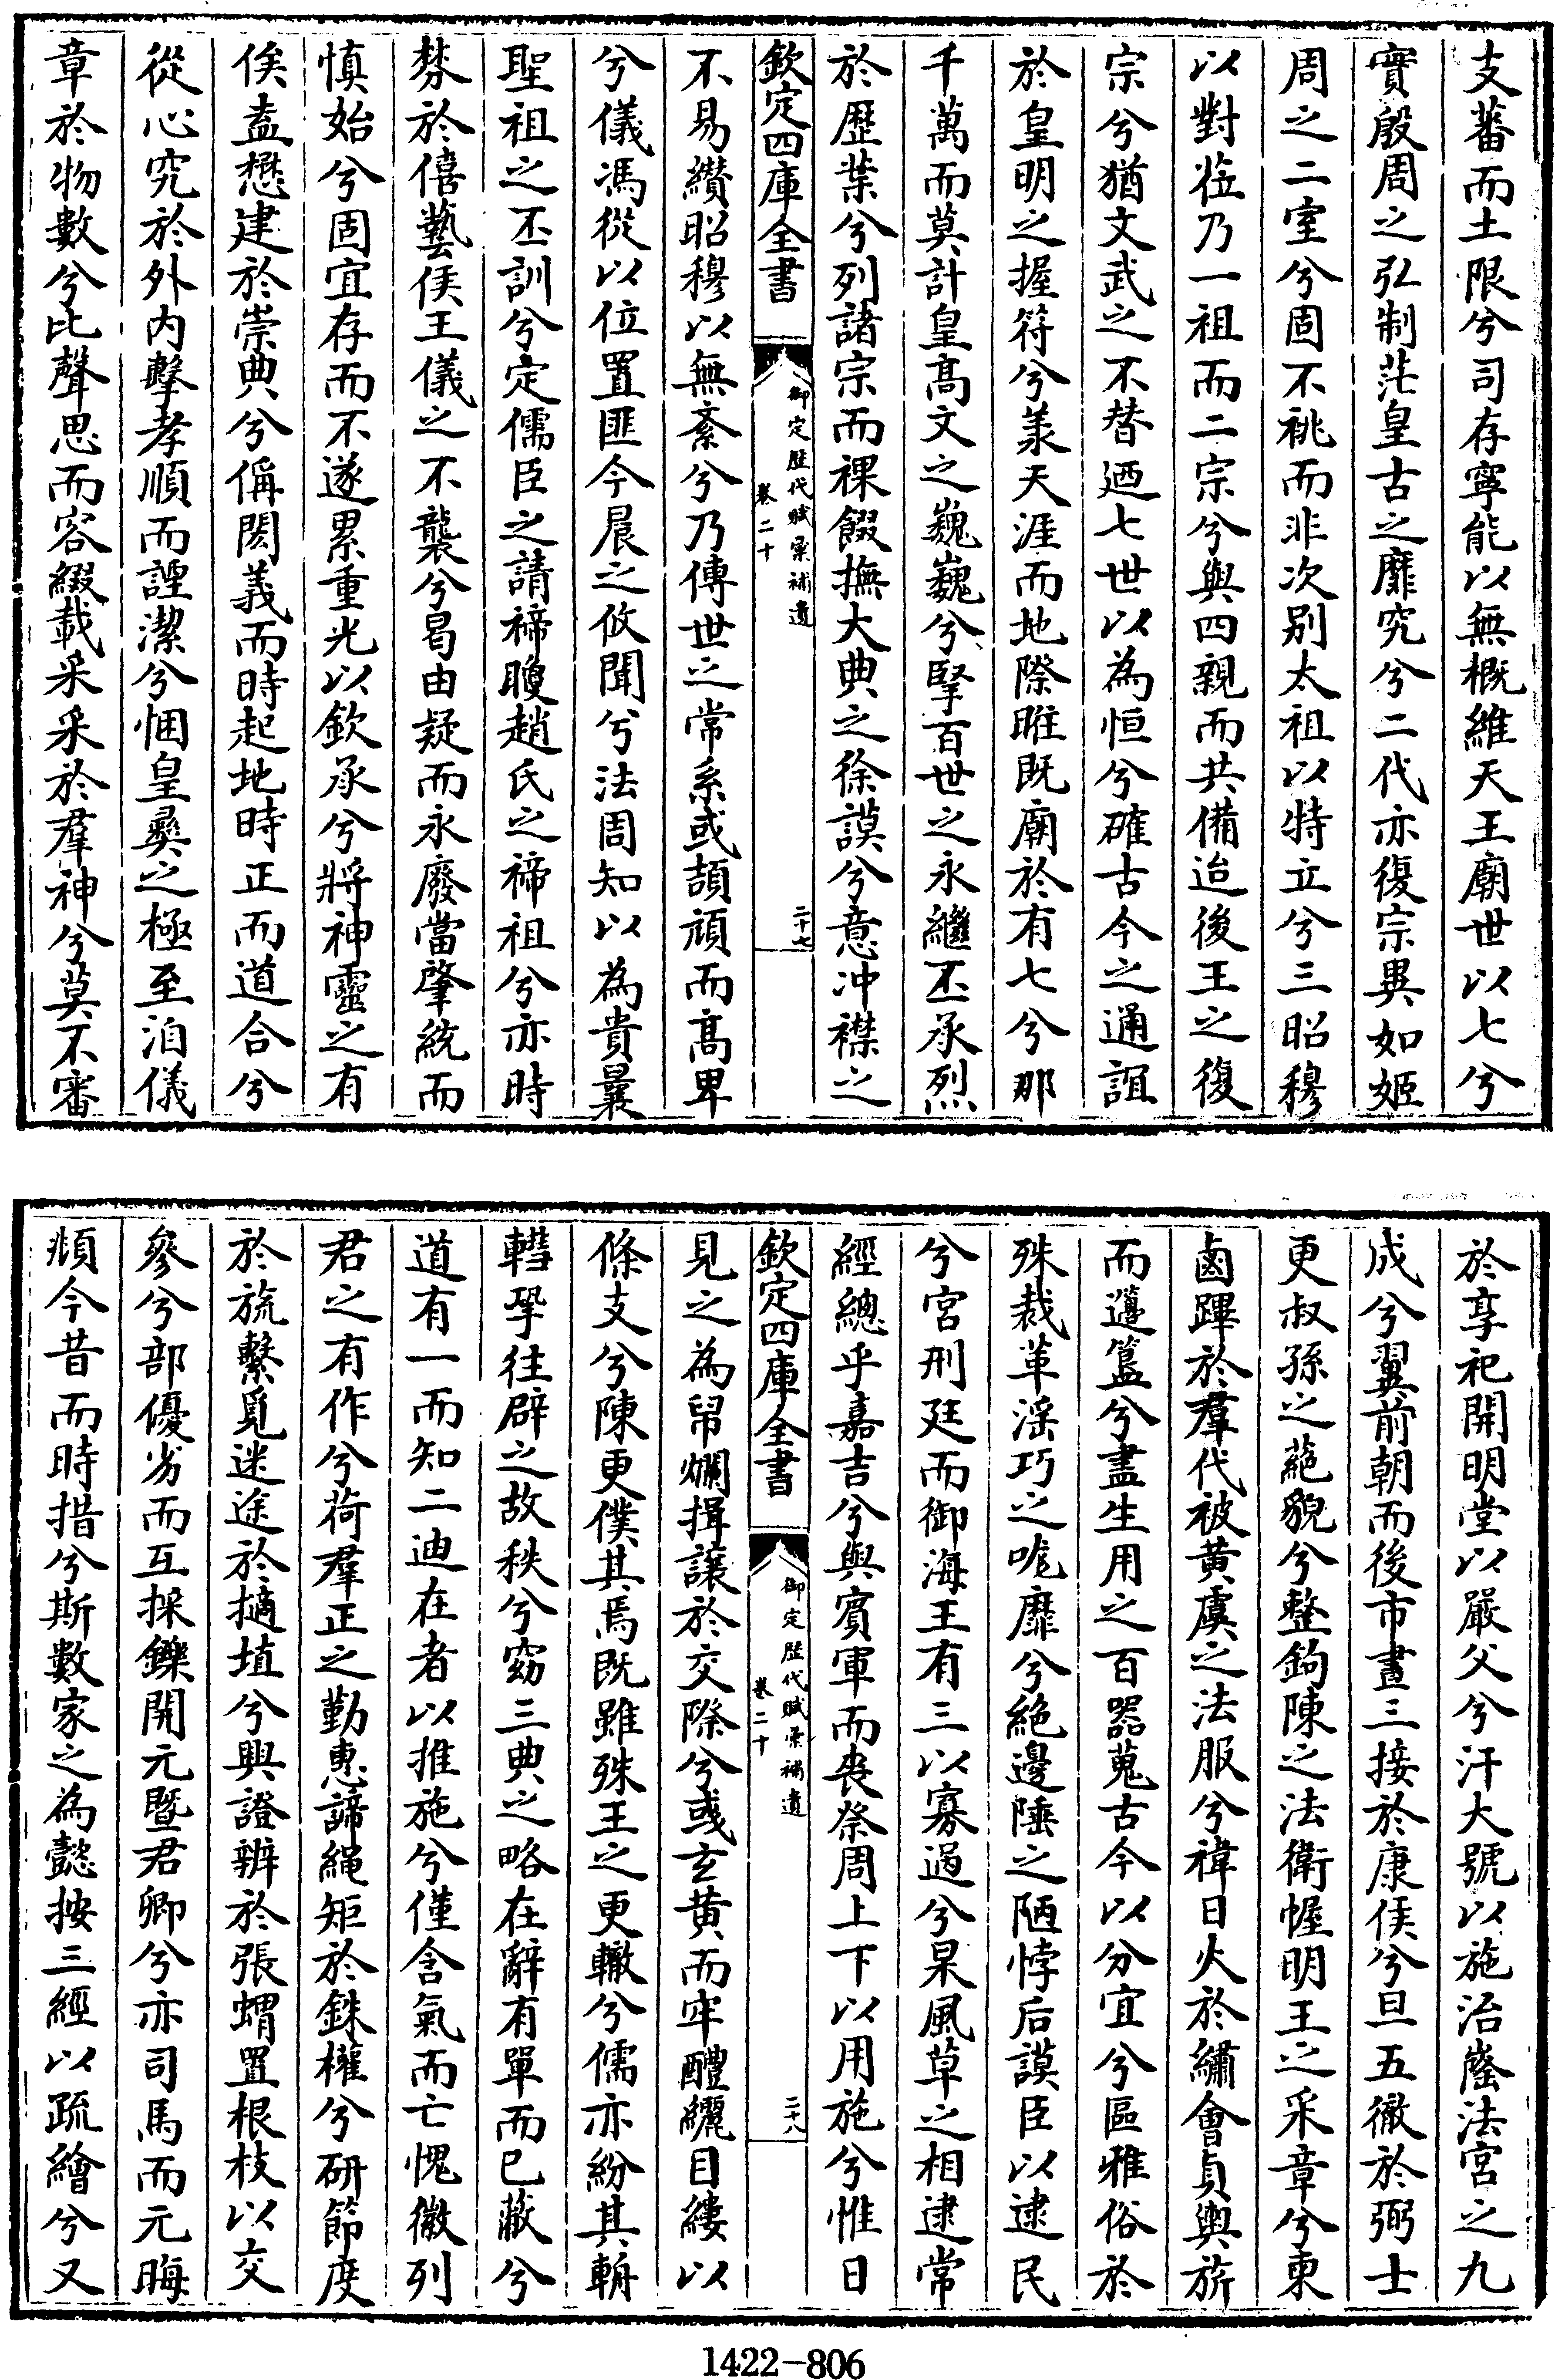 支蕃而土限兮司存寧能以無概維天王廟世以七兮
實殷周之弘制茫皇古之靡究兮二代亦復宗異如姬
周之二室兮固不祧而非次別太祖以特立兮三昭穆
以對蒞乃一祖而二宗兮與四親而共備迨後王之復
宗兮猶文武之不替迺七世以為恒兮確古今之通誼
於皇明之握符兮羕天涯而地際睢既廟於有七兮那
千萬而莫計皇高文之巍巍兮擥百世之永繼丕承烈
於歴葉兮列諸宗而祼餟撫大典之徐謨兮意冲襟之
欽定四庫全書
御定歴代賦彙補遺
卷二十
二十七
不易纘昭穆以無紊兮乃傳世之常系或頡頏而高卑
兮儀馮從以位置匪今晨之攸聞兮法周知以為貴曩
聖祖之丕訓兮定儒臣之請禘瞍趙氏之禘祖兮亦時
棼於僖藝俟王儀之不襲兮曷由疑而永廢當肇統而
慎始兮固宜存而不遂累重光以欽承兮將神靈之有
俟盍懋建於崇典兮偁閎義而時起地時正而道合兮
從心究於外內擊孝順而諲潔兮悃皇彜之極至洎儀
章於物數兮比聲思而容綴載采采於羣神兮莫不審
於享祀開明堂以嚴父兮汗大號以施治崟法宮之九
成兮翼前朝而後市晝三接於康侯兮旦五徹於弼士
更叔孫之蕝貌兮整鉤陳之法衛幄明王之采章兮東
鹵蹕於羣代被黄虞之法服兮褘日火於繡會貞輿旂
而籩簋兮盡生用之百器蒐古今以分宜兮區雅俗於
殊裁革淫巧之哤靡兮絶邊陲之陋悖后謨臣以逮民
兮宮刑廷而御海王有三以寡過兮杲風草之相逮常
經總乎嘉吉兮與賓軍而喪祭周上下以用施兮惟日
欽定四庫全書
御定歴代賦彙補遺
卷二十
二十八
見之為帛爛揖讓於交際兮彧玄黄而牢醴纚目縷以
條支兮陳更僕其焉既雖殊王之更轍兮儒亦紛其輈
轊孕往辟之故秩兮窈三典之略在辭有單而已蔽兮
道有一而知二迪在者以推施兮僅含氣而亡愧徽列
君之有作兮荷羣正之勤惠諦䋲矩於銖權兮研節度
於旒繫覓迷途於擿埴兮輿證辨於張蝟置根枝以交
參兮部優劣而互採鑠開元暨君卿兮亦司馬而元晦
頫今昔而時措兮斯數家之為懿按三經以疏繪兮又
1422-806